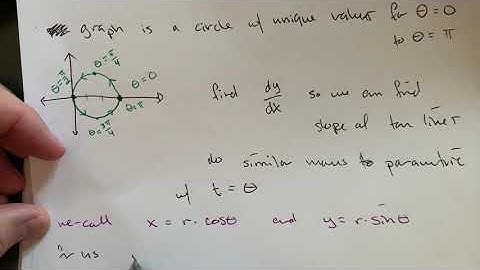 graph is a circle w/ unique values for θ = 0
to θ = π
θ = π/4
θ = π/2
θ = 0
θ = π
θ = 3π/4
find dy/dx so we can find
slope of tan lines
do similar to parametric
w/ t = θ
re-call x = r·cosθ and y = r·sinθ
us